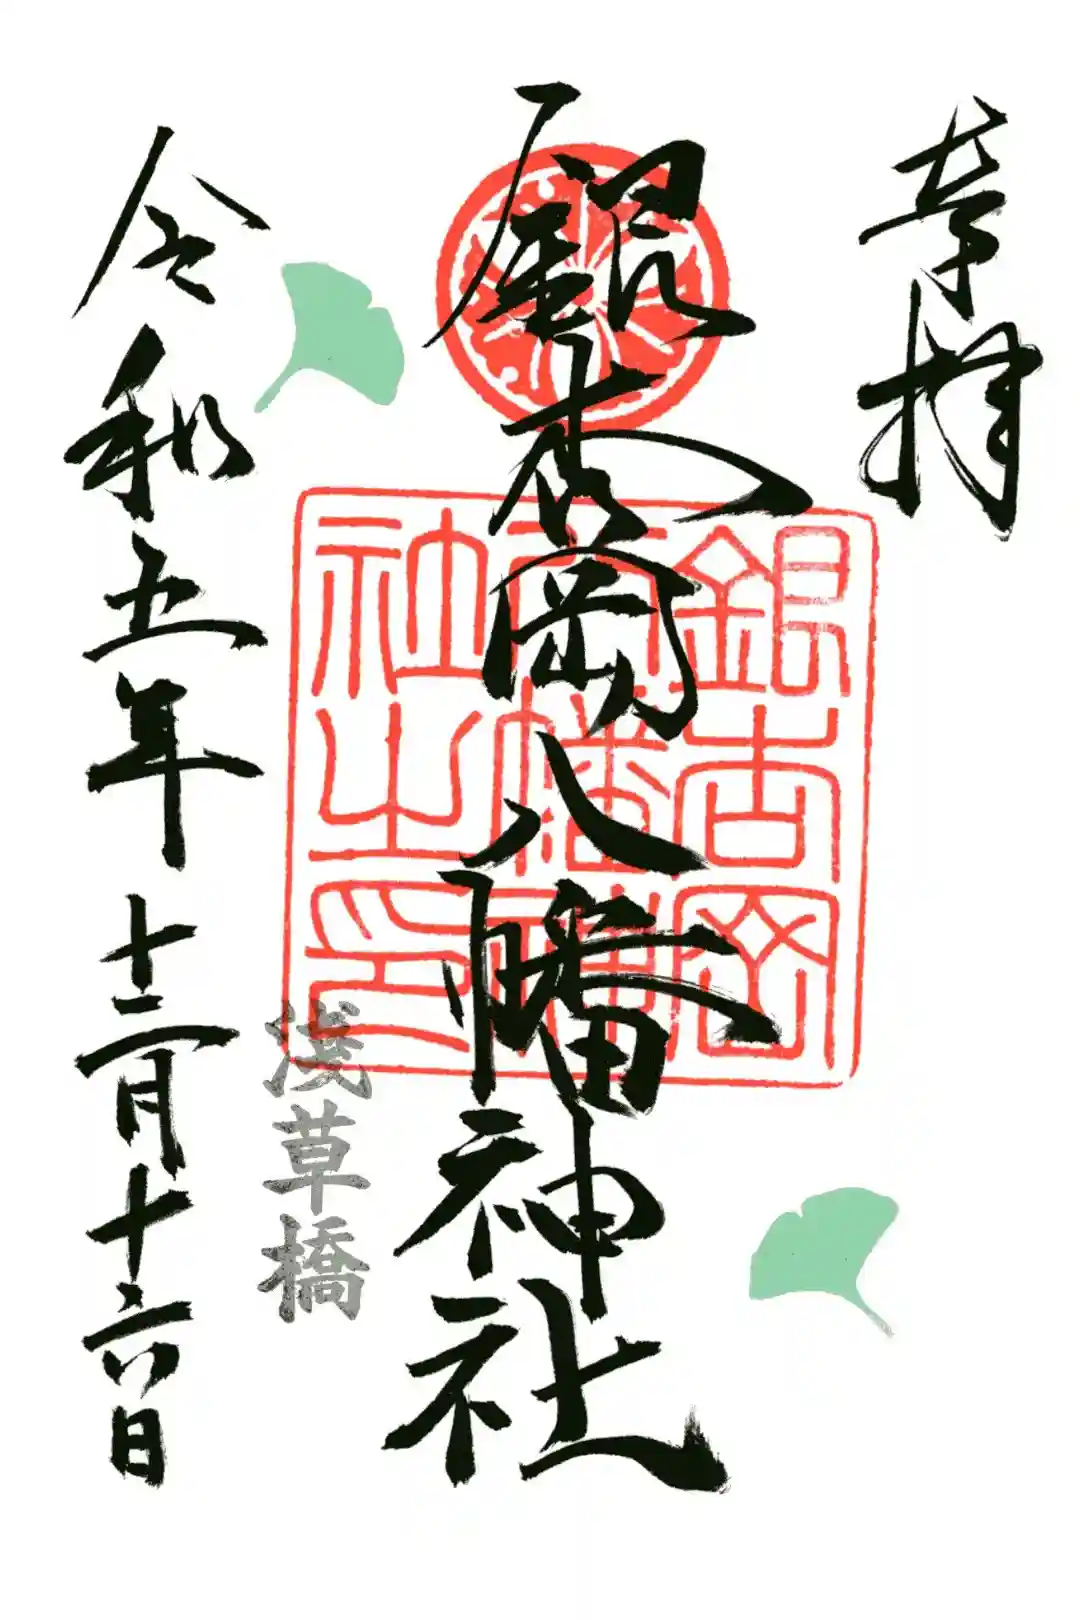 奉拝
銀杏岡八幡神社
銀杏岡
八幡神
社之印
淺草橋
令和五年十二月十六日